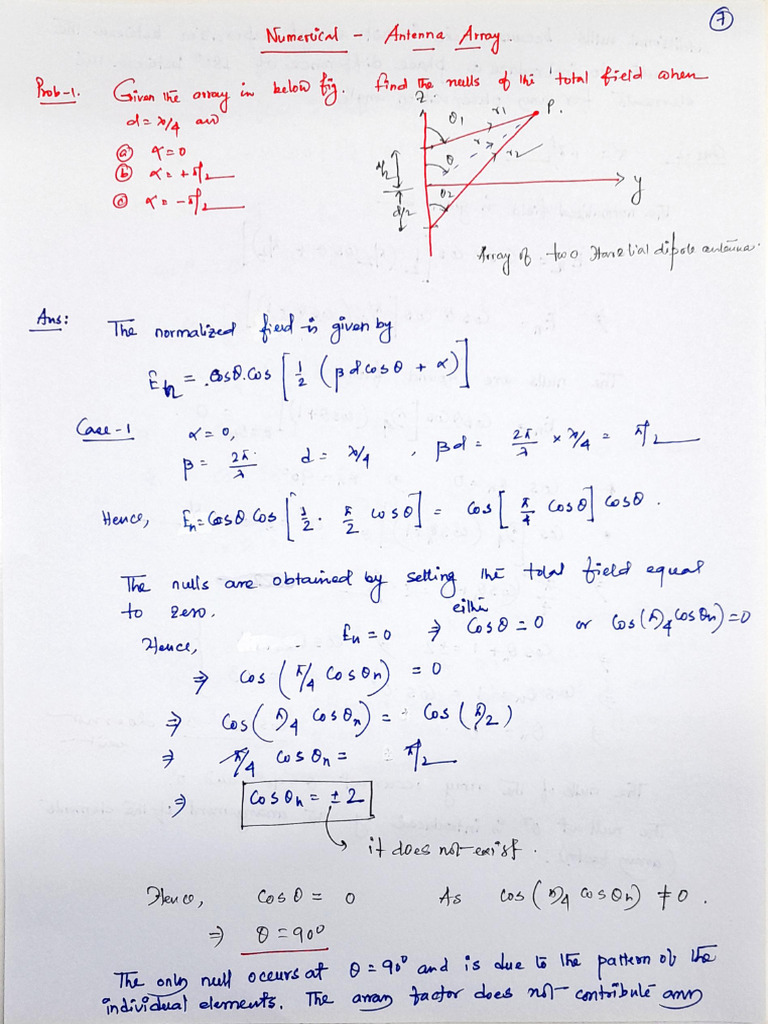 7
Numerical - Antenna Array.
Prob-1. Given the array in below fig. find the nulls of the total field when
d = λ/4 and
(a) α = 0
(b) α = +π/2
(c) α = -π/2
Z
θ1
r1
P.
d/2
θ
r
r2
d/2
θ2
y
Array of two Horizontal dipole antenna.
Ans: The normalized field is given by
En = cosθ.cos [1/2 (βd cosθ + α)]
Case-1 α = 0,
β = 2π/λ d = λ/4, βd = 2π/λ × λ/4 = π/2
Hence, En = cosθ cos [1/2 . π/2 cosθ] = cos [π/4 cosθ] cosθ.
The nulls are obtained by setting the total field equal
to zero.
either
Hence, En = 0 ⇒ cosθ = 0 or cos(π/4 cosθn) = 0
⇒ cos (π/4 cosθn) = 0
⇒ cos(π/4 cosθn) = cos(π/2)
⇒ π/4 cosθn = π/2
⇒ cosθn = ±2
it does not exist.
Hence, cosθ = 0 As cos(π/4 cosθn) ≠ 0.
⇒ θ = 90°
The only null occurs at θ = 90° and is due to the pattern of the
individual elements. The array factor does not contribute any